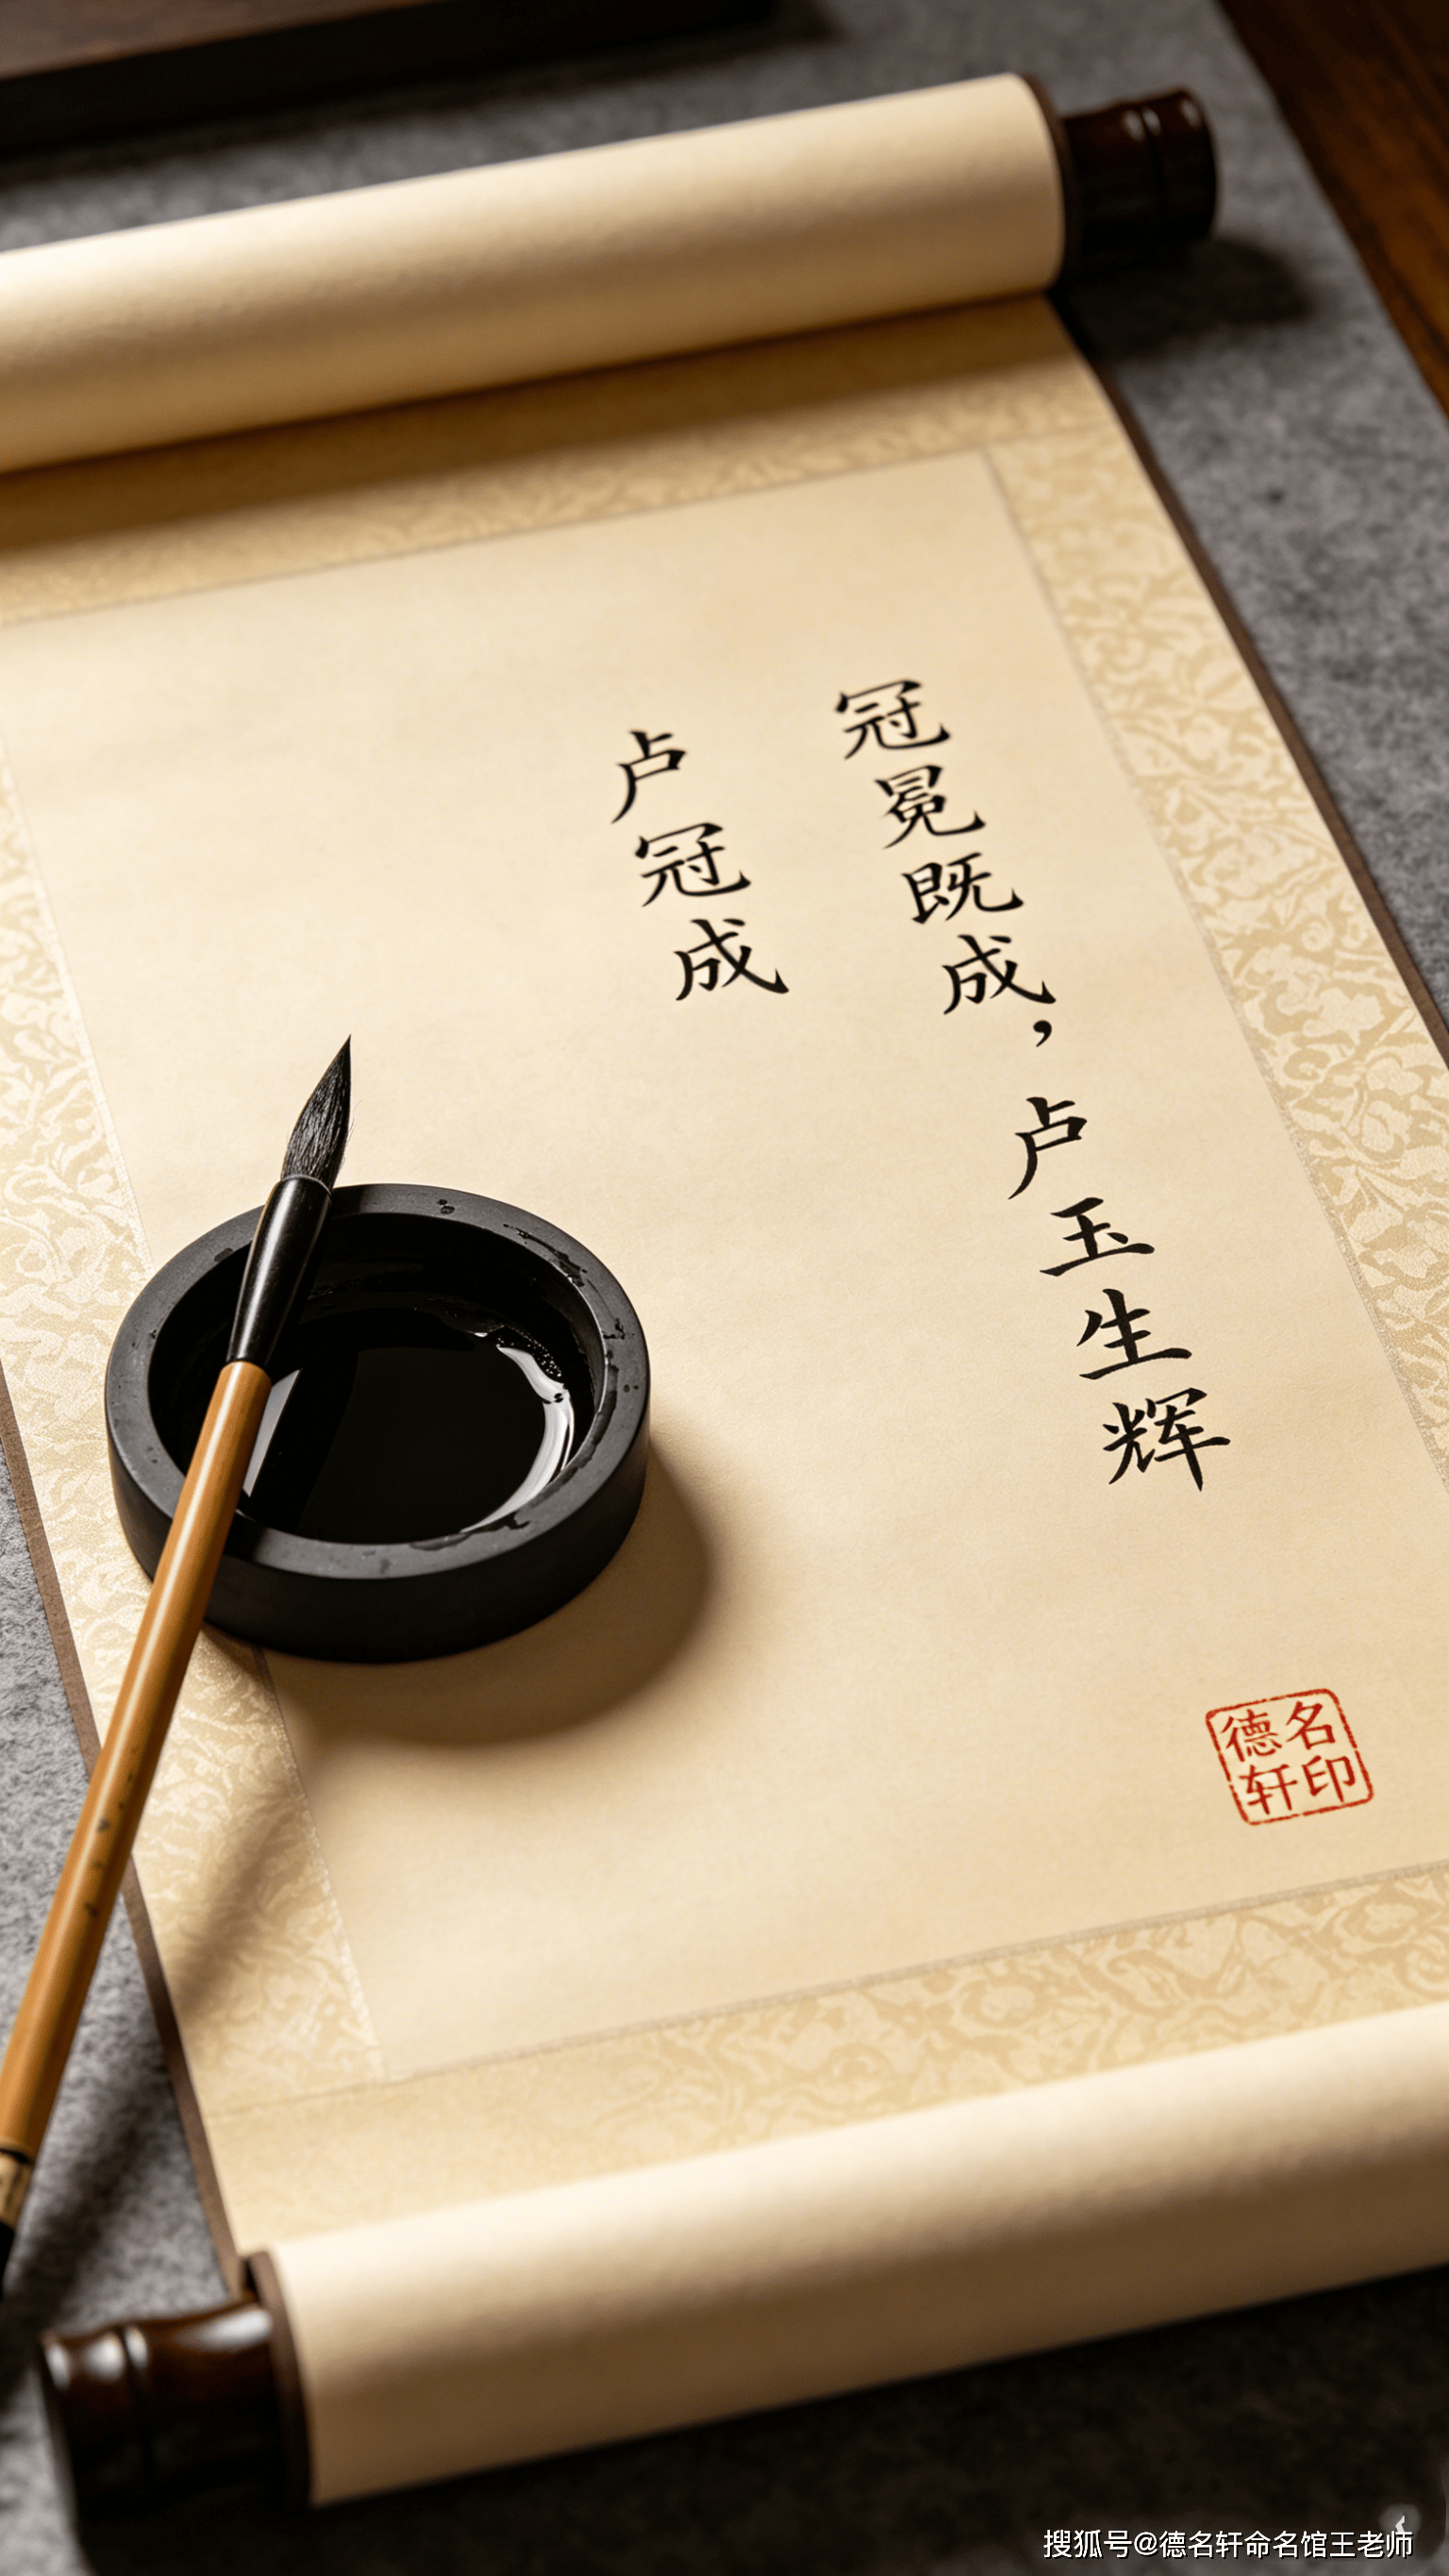 冠冕既成，卢玉生辉
卢冠成
德名
轩印
搜狐号@德名轩命名馆王老师